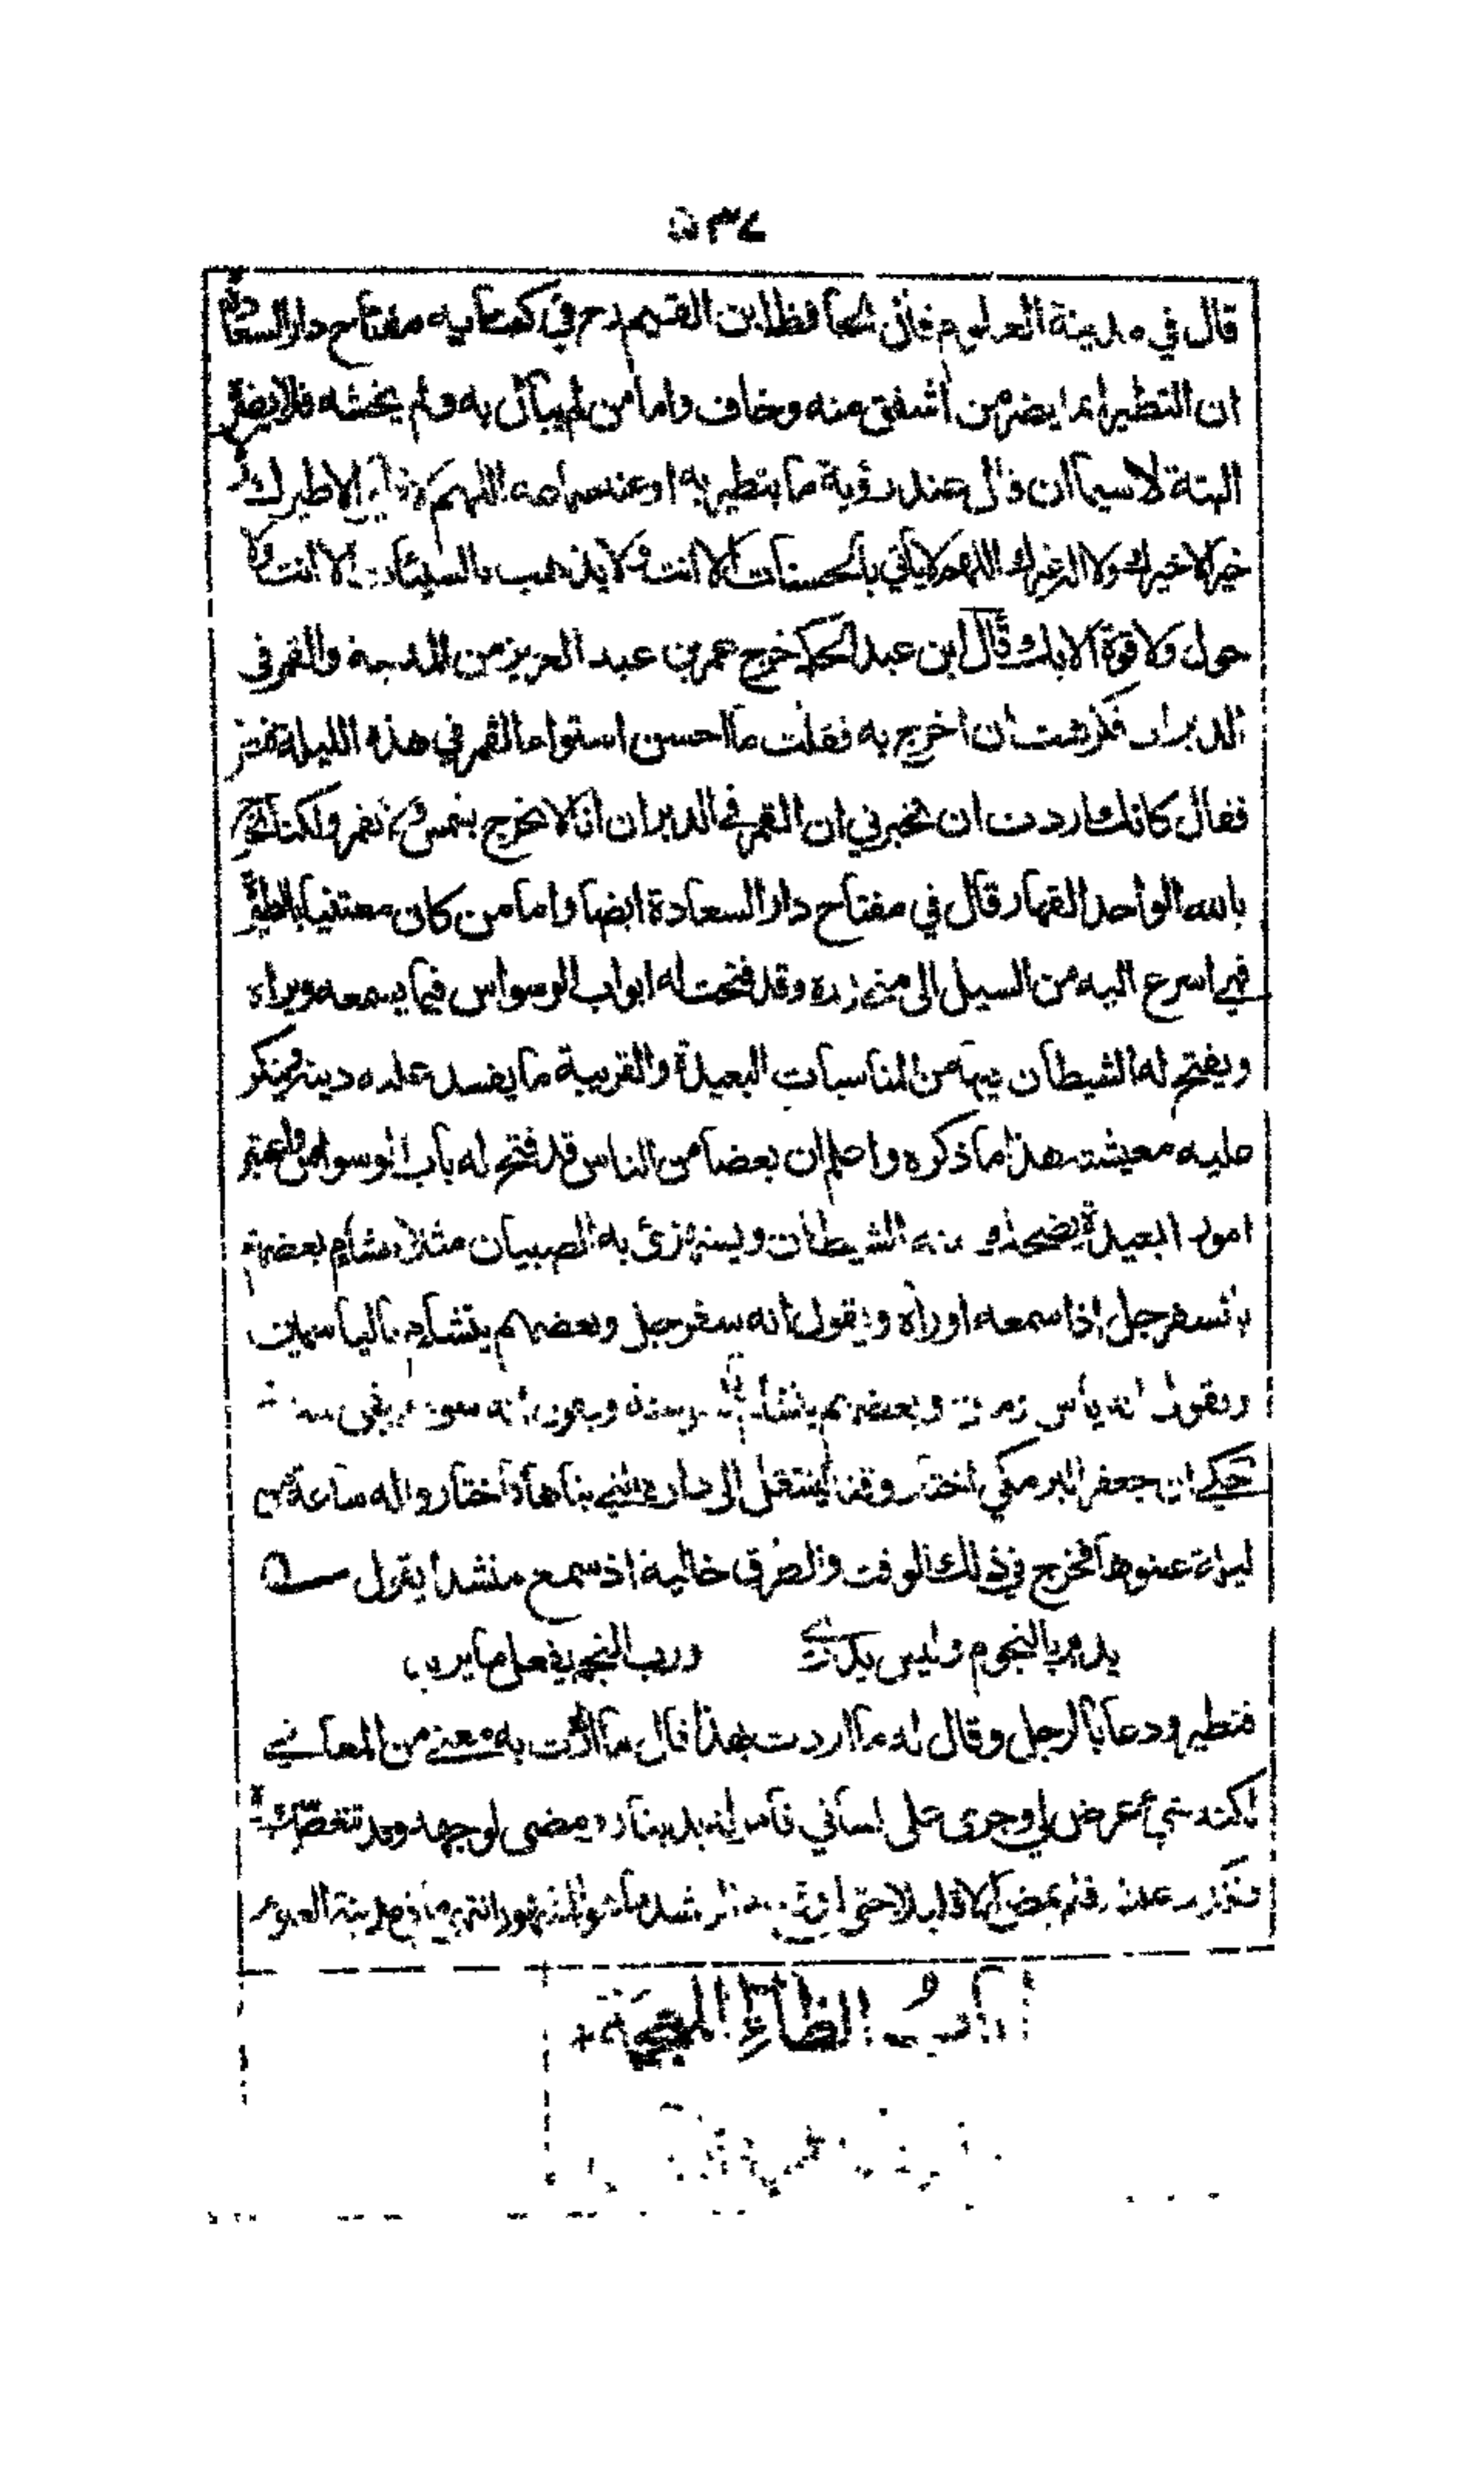 ٥٣٤
قال في مدينة العلوم قال الحافظ ابن القيم رح في كتابه مفتاح دار السعادة
ان التطير انما يضر من اشفق منه وخاف واما من لم يبال به ولم يخشه فلا يضره
البتة لاسيما ان قال عند رؤية ما يتطير به او عند سماعه اللهم لا طير الا طيرك ولا
خير الا خيرك ولا اله غيرك اللهم لا يأتي بالحسنات الا انت ولا يذهب بالسيئات الا انت ولا
حول ولا قوة الا بك وقال ابن عبد الحكم خرج عمر بن عبد العزيز من المدينة والقمر في
الدبران فكرهت ان اخرج به فقلت ما احسن استواء القمر في هذه الليلة فنظر
فقال كانك اردت ان تخبرني ان القمر في الدبران انا لا نخرج بشمس ولا بقمر ولكنا نخرج
بالله الواحد القهار قال في مفتاح دار السعادة ايضا واما من كان معتنيا بالطيرة
فهي اسرع اليه من السيل الى منحدره وقد فتحت له ابواب الوسواس فيما يسمعه ويراه
ويفتح له الشيطان فيها من المناسبات البعيدة والقريبة ما يفسد عليه دينه وينكد
عليه معيشته هذا ما ذكره واعلم ان بعضا من الناس قد فتح له باب الوسواس واعتبر
امورا بعيدة يضحك منه الشيطان ويستهزئ به الصبيان مثلا تشام بعضهم
بالسفرجل اذا سمعه او راه ويقول انه سفر جل وبعضهم يتشاءم بالياسمين
ويقول انه ياس ومين وبعضهم يتشاءم بالسوسنة ويقول انه سوء يبقى سنة
حكي ان جعفر البرمكي اختار وقتا لينتقل الى داره التي بناها فاختاروا له ساعة من
ليلة عينوها فخرج في ذلك الوقت والطرق خالية اذ سمع منشدا يقول
يدبر بالنجوم وليس يدري ورب النجم يفعل ما يريد
فتطير ودعا بالرجل وقال له ما اردت بهذا قال ما اردت به معنى من المعاني
لكنه شيء عرض لي وجرى على لساني فامر له بدينار ومضى لوجهه وقد تنغص سروره
وتكدر عيشه فلم يمض الا قليلا حتى اوقع بهم الرشيد ما هو المشهور انتهى ما في مدينة العلوم
باب الظاء المعجمة